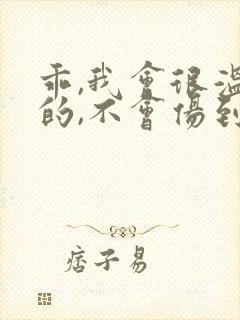 乖,我會很溫
的,不會傷到
痞子易